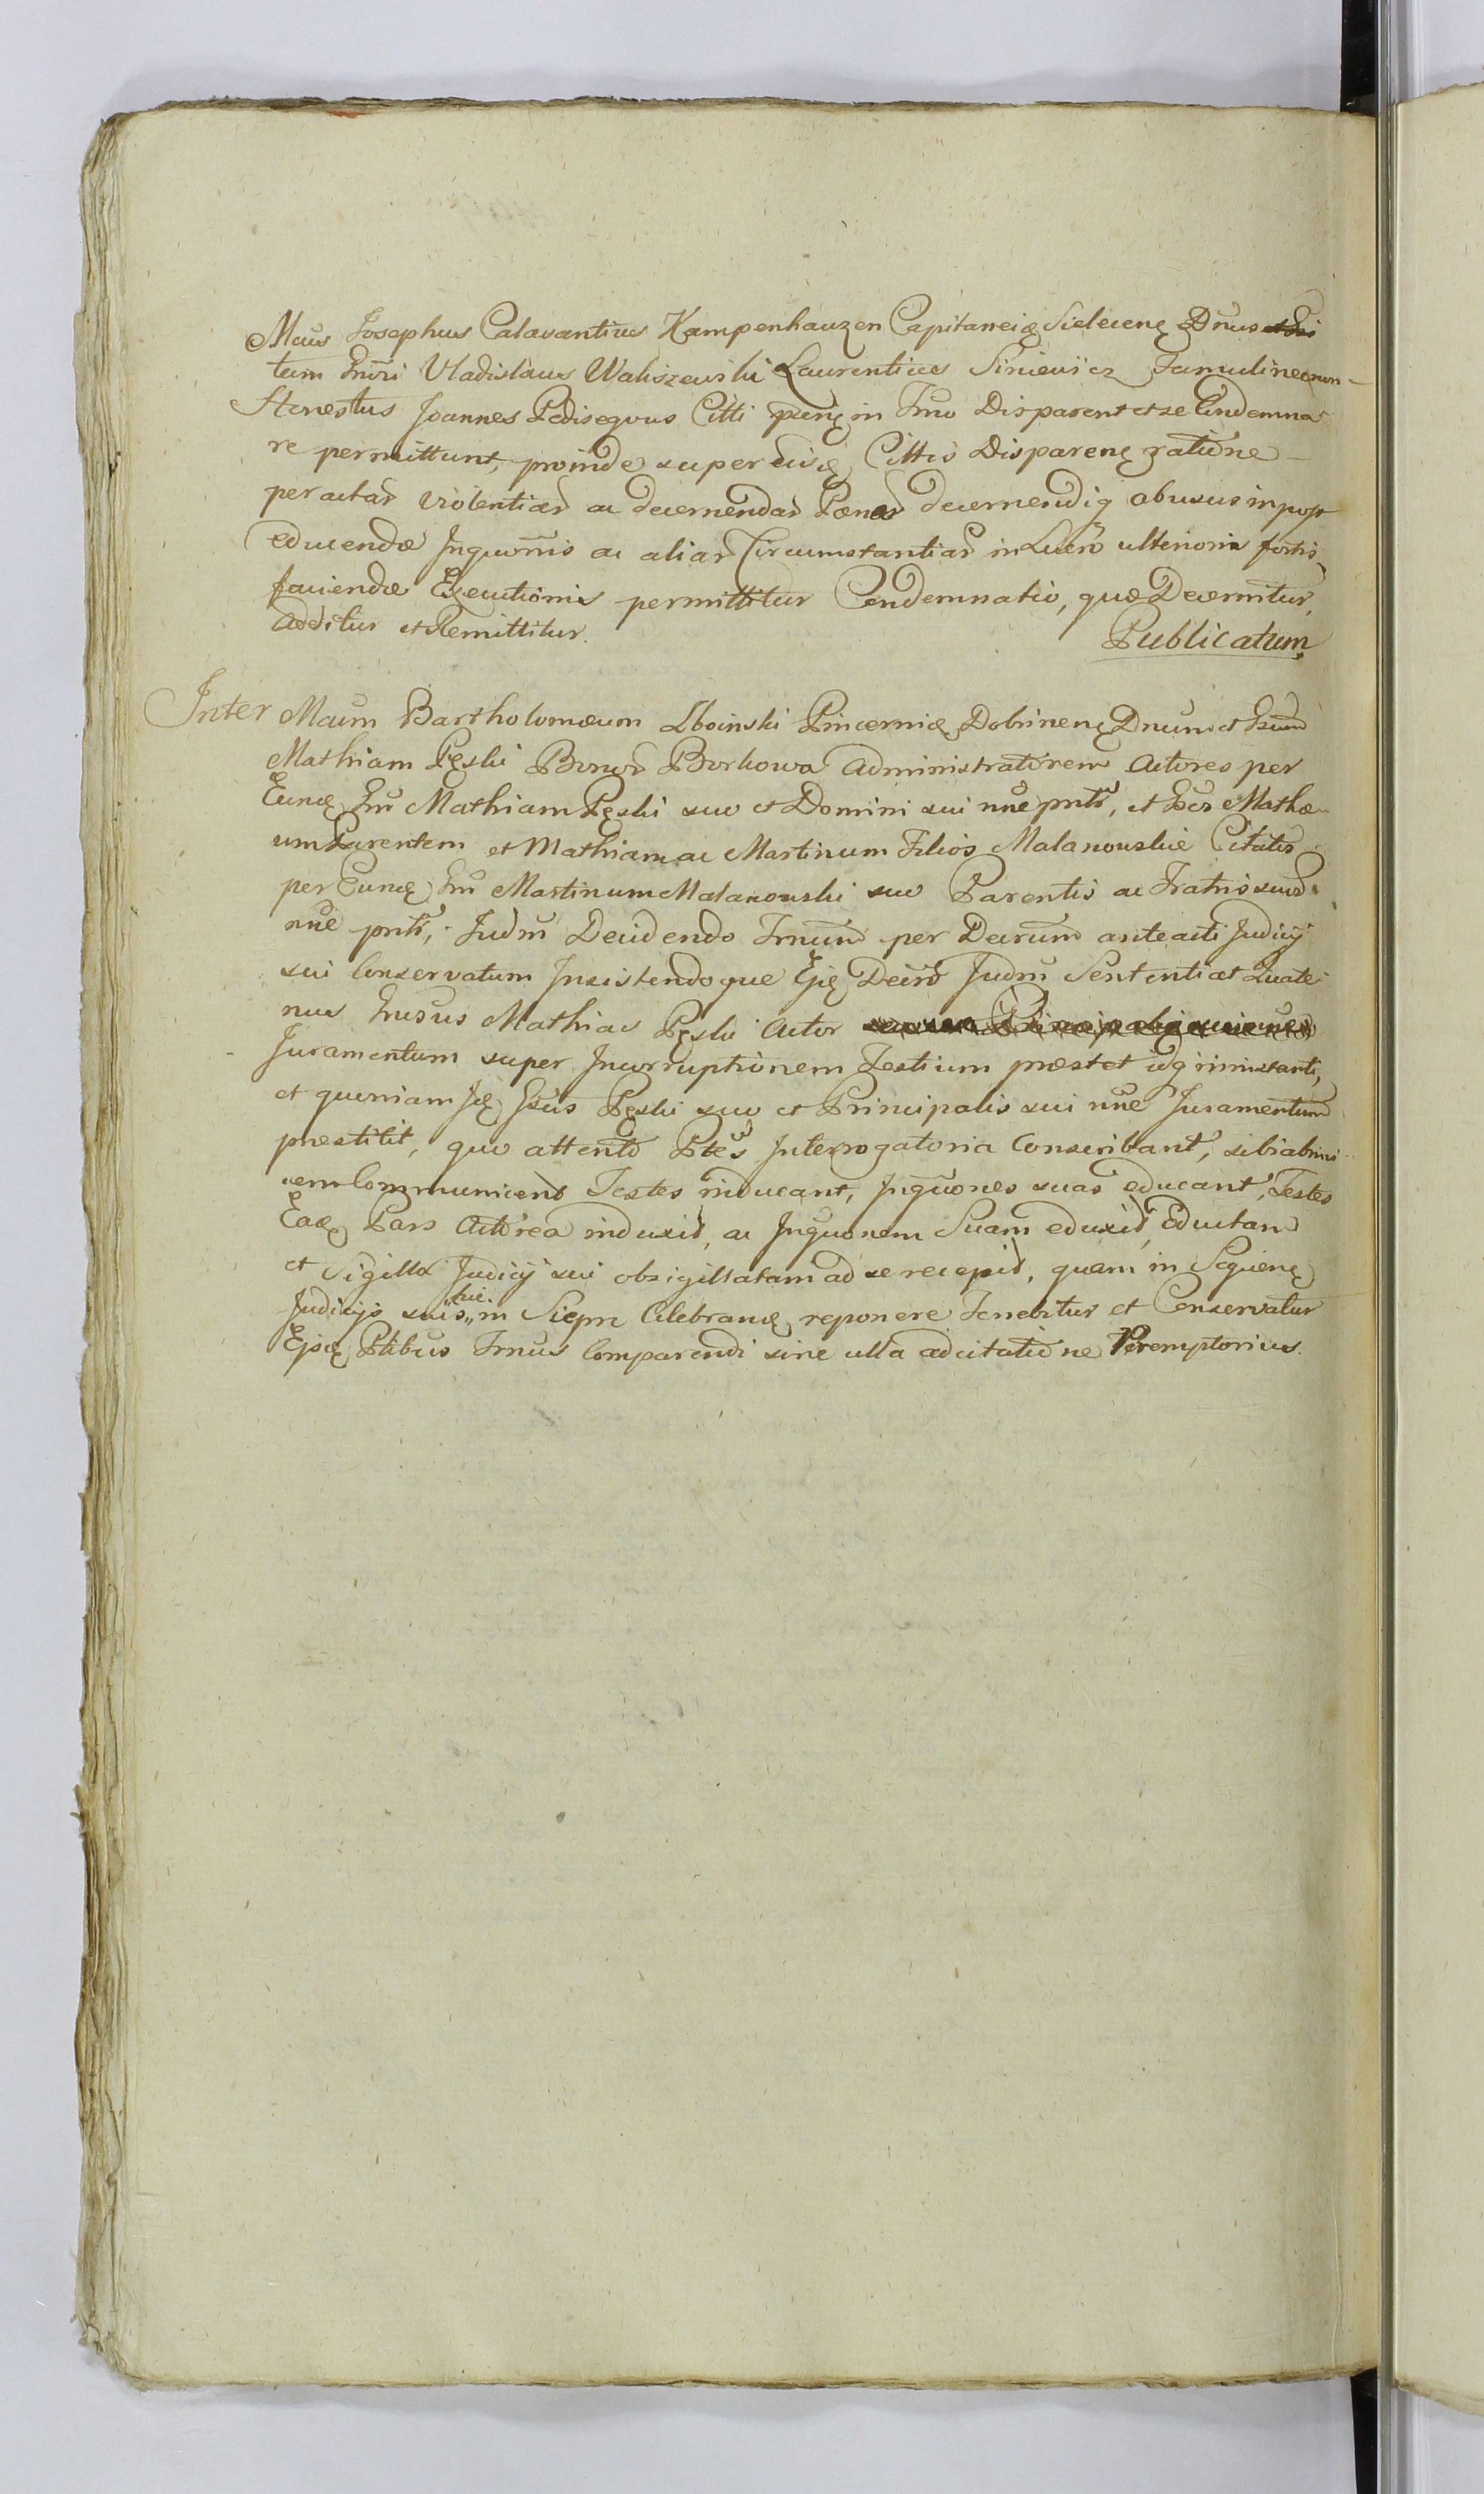 Mcus Josephus Calavantius Kampenhauzen Capitaneiꝫ Sieleceñ Dnus
tum Gnŏri Vladislaus Waliszewski Laurentius Siniewicz Famuli necnon
Honestus Joannes Pedisequus Citti in Tmo Disparent et se Condemna
re permittunt, proinde super eisꝫ Cittis Dispareñ ratione
peractas violentias ac decernendas Pænas decernendiꝫ abusus
educendæ Inquōnis ac alias Circumstantias in Lucro ulterioris fortis
faciendæ Executionis permittitur Condemnatio, quæ Decernitur,
Additur et Remittitur. Publicatum
Inter Mcum Bartholomæum Zboinski Pincerniꝫ Dobrineñ Dnum et Gsum
Mathiam Pęski Bonor̄ Borkowa Administratorem Actores per
Eundꝫ Gm̄ Mathiam Pęski suo et Domini sui nñe pntt, et Gsos Mathæ
um Parentem et Mathiam ac Martinum Filios Malanowskie Citatos
per Eundꝫ Gm̄ Martinum Malanowski suo Parentis ac Fratris suor̄
nñe pntt, Judm̄ Decidendo Tmum per Decrum anteacti Judicij
sui Conservatum Insistendoque Ejꝫ Decro Judm̄ Sententiat Quate
nus Gnosus Mathias Pęski Actor
Juramentum super Incorruptionem Testium præstet idꝫ in instanti,
et quoniam Idꝫ Gsus Pęski suo et Principalis sui nñe Juramentum
præstitit, quo attento Ptes Interrogatoria Conscribant, sibi ab invi
cem Communicent Testes inducant, Inquōnes suas educant, Testes
Eadꝫ Pars Actorea induxit, ac Inquonem Suam eduxit, Eductam
et Sigillo Judicij sui obsigillatam ad se recepit, quam in Sequeñ
Judicijs suis hic in Siepr Celebrandꝫ reponere Tenebitur et Conservatur
Ejsdꝫ Ptibus Tmus Comparendi sine ulla adcitatione Peremptorius.